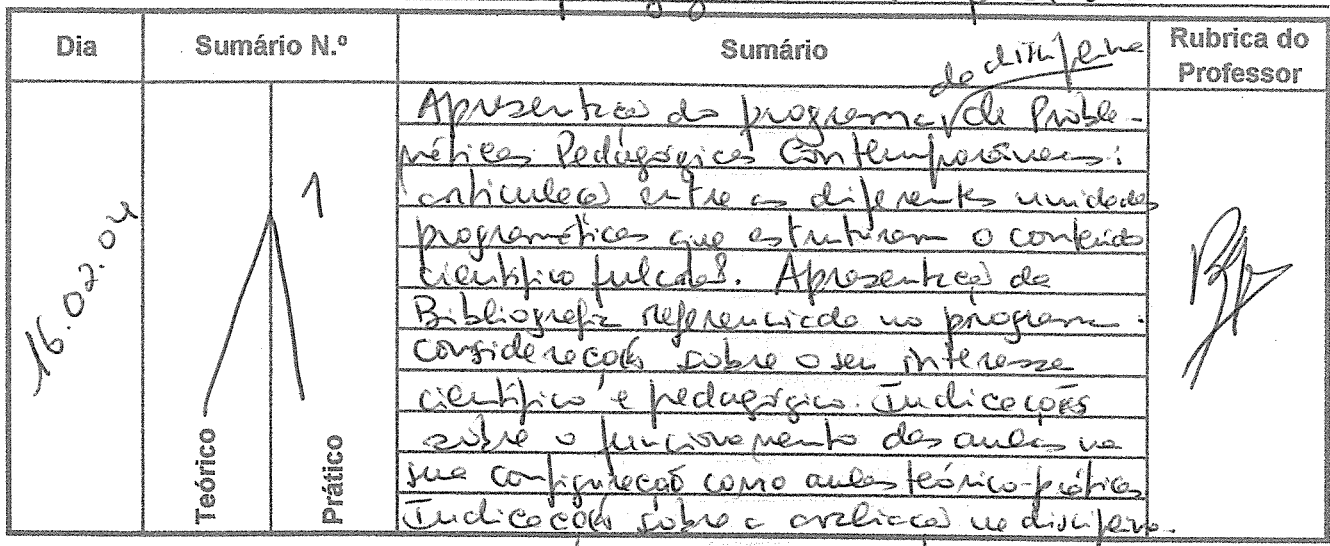 Dia
Sumário N.º
Sumário
Rubrica do
Professor
da disciplina
Apresentação do programa de Proble-
máticas Pedagógicas Contemporâneas:
articulação entre as diferentes unidades
programáticas que estruturam o conteúdo
científico fulcral. Apresentação da
Bibliografia referenciada no programa.
Considerações sobre o seu interesse
científico e pedagógico. Indicações
sobre o funcionamento das aulas na
sua configuração como aulas teórico-práticas
Indicações sobre a avaliação na disciplina.
16.02.04
1
Teórico
Prático